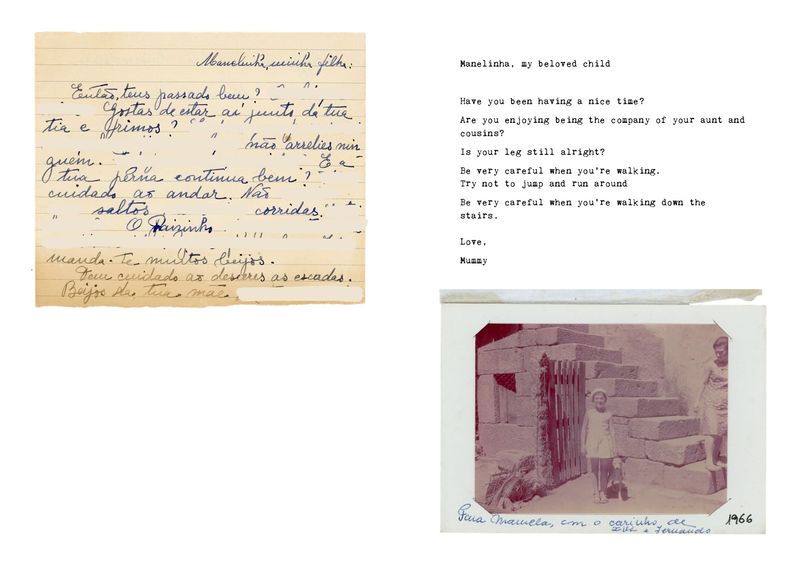 Manelinha, minha filha:
Então, teus passado bem?
Gostas de estar aí junto da tua
tia e primos?
não arrelies nin
guém. E a
tua perna continua bem?
cuidado ao andar. Não
saltos corridas.
O Paizinho
manda-te muitos beijos.
Tem cuidado ao desceres as escadas.
Beijos da tua mãe
Manelinha, my beloved child
Have you been having a nice time?
Are you enjoying being the company of your aunt and
cousins?
Is your leg still alright?
Be very careful when you're walking.
Try not to jump and run around
Be very careful when you're walking down the
stairs.
Love,
Mummy
Para Manuela, com o carinho de
e Fernando
1966